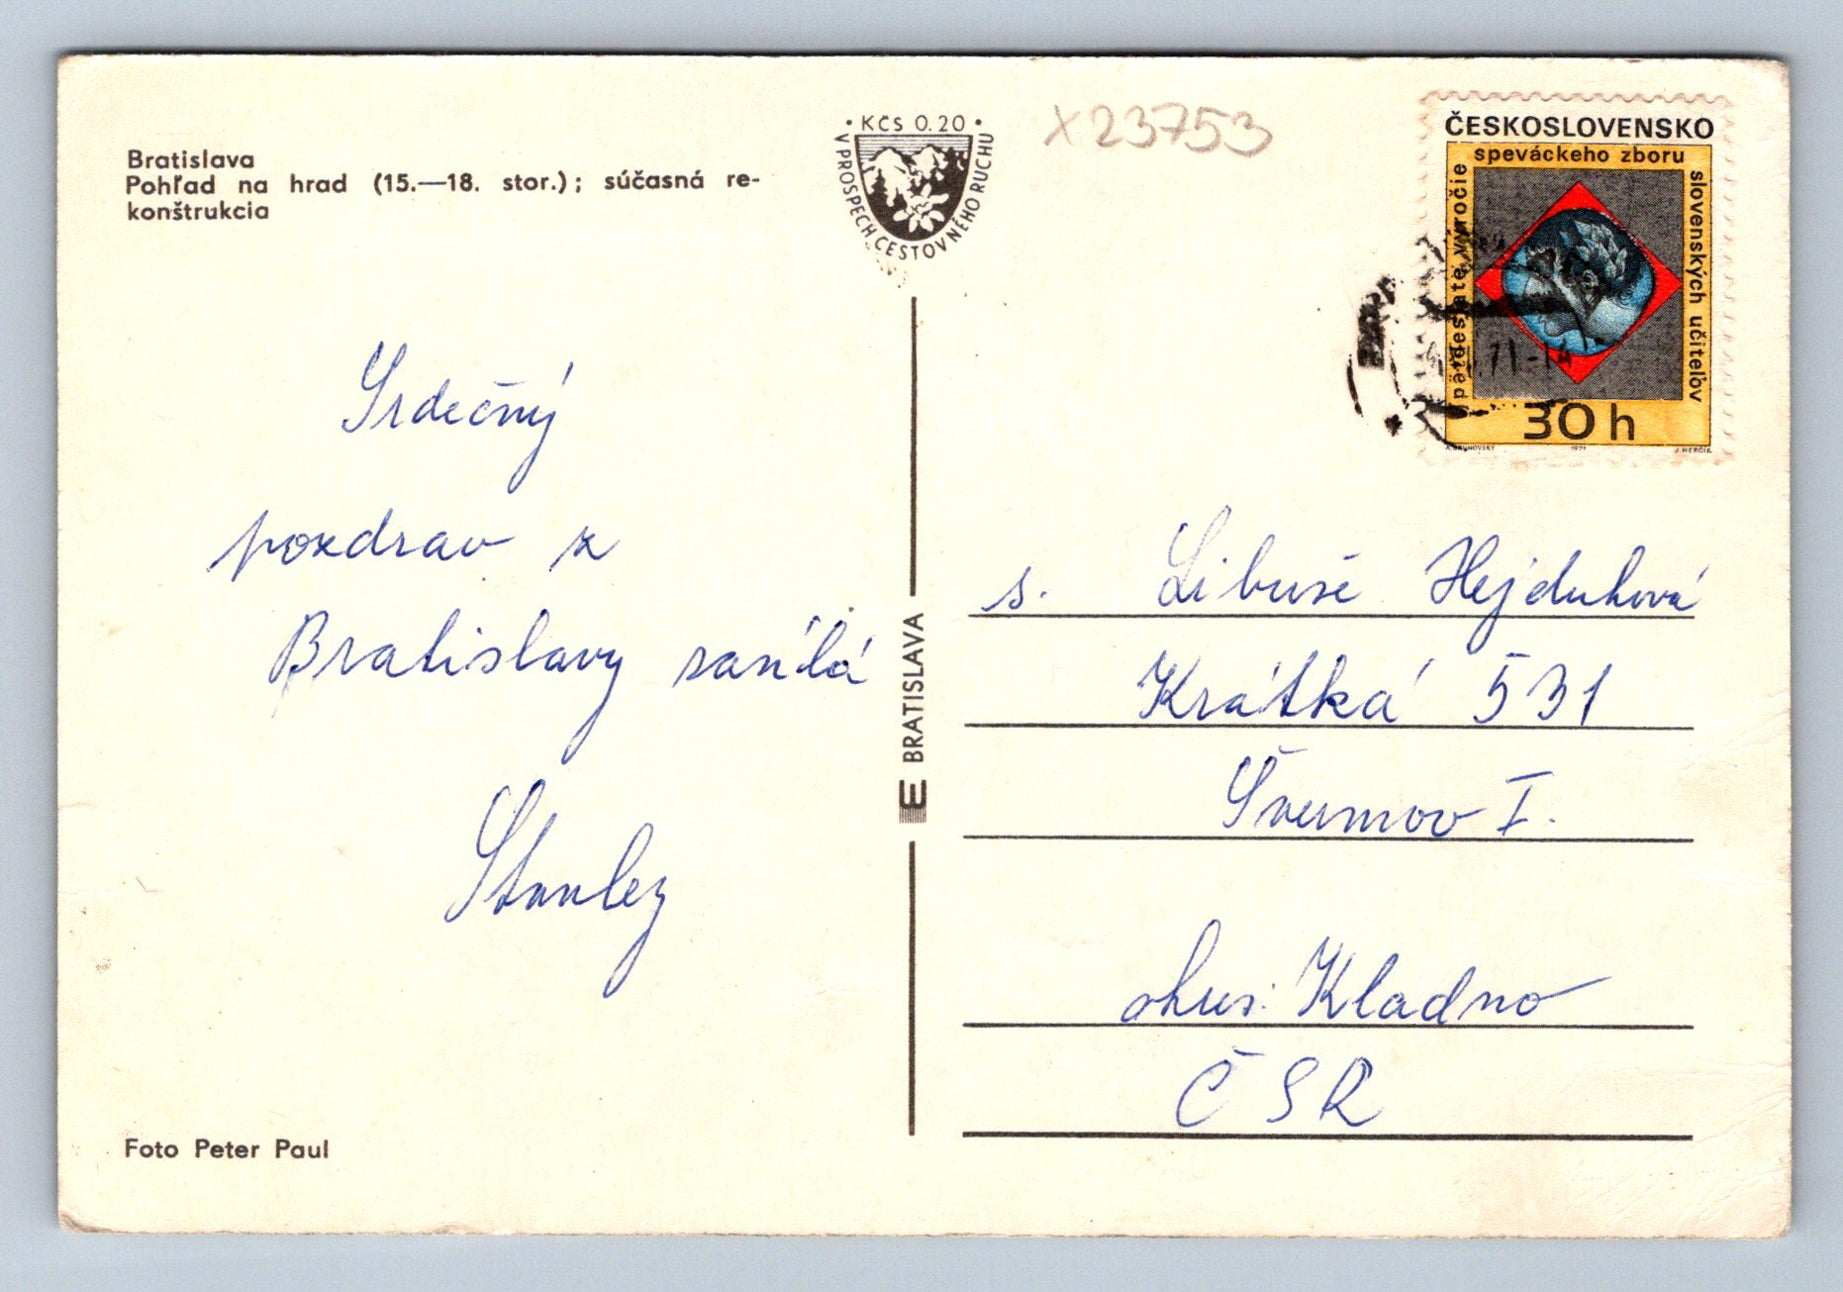 Bratislava
Pohľad na hrad (15.—18. stor.); súčasná re-
konštrukcia
• KČS 0.20 •
V PROSPECH CESTOVNÉHO RUCHU
X23753
ČESKOSLOVENSKO
päťdesiate výročie
speváckeho zboru
slovenských učiteľov
30 h
A. BRUNOVSKÝ 1971 J. HERČÍK
71-14
Srdečný
pozdrav z
Bratislavy zasílá
Stanley
BRATISLAVA
s. Libuše Hejduková
Krátká 531
Švermov I.
okres: Kladno
ČSR
Foto Peter Paul